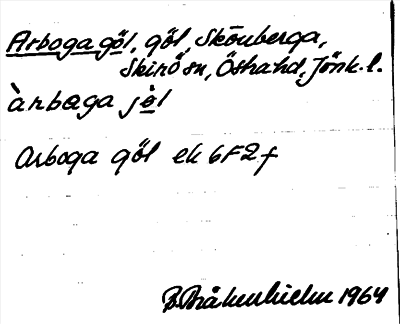 Arboga göl, göl, Skönberga,
Skirö sn, Östra hd, Jönk. l.
àrbaga jö̀l
Arboga göl ek 6F2f
1964